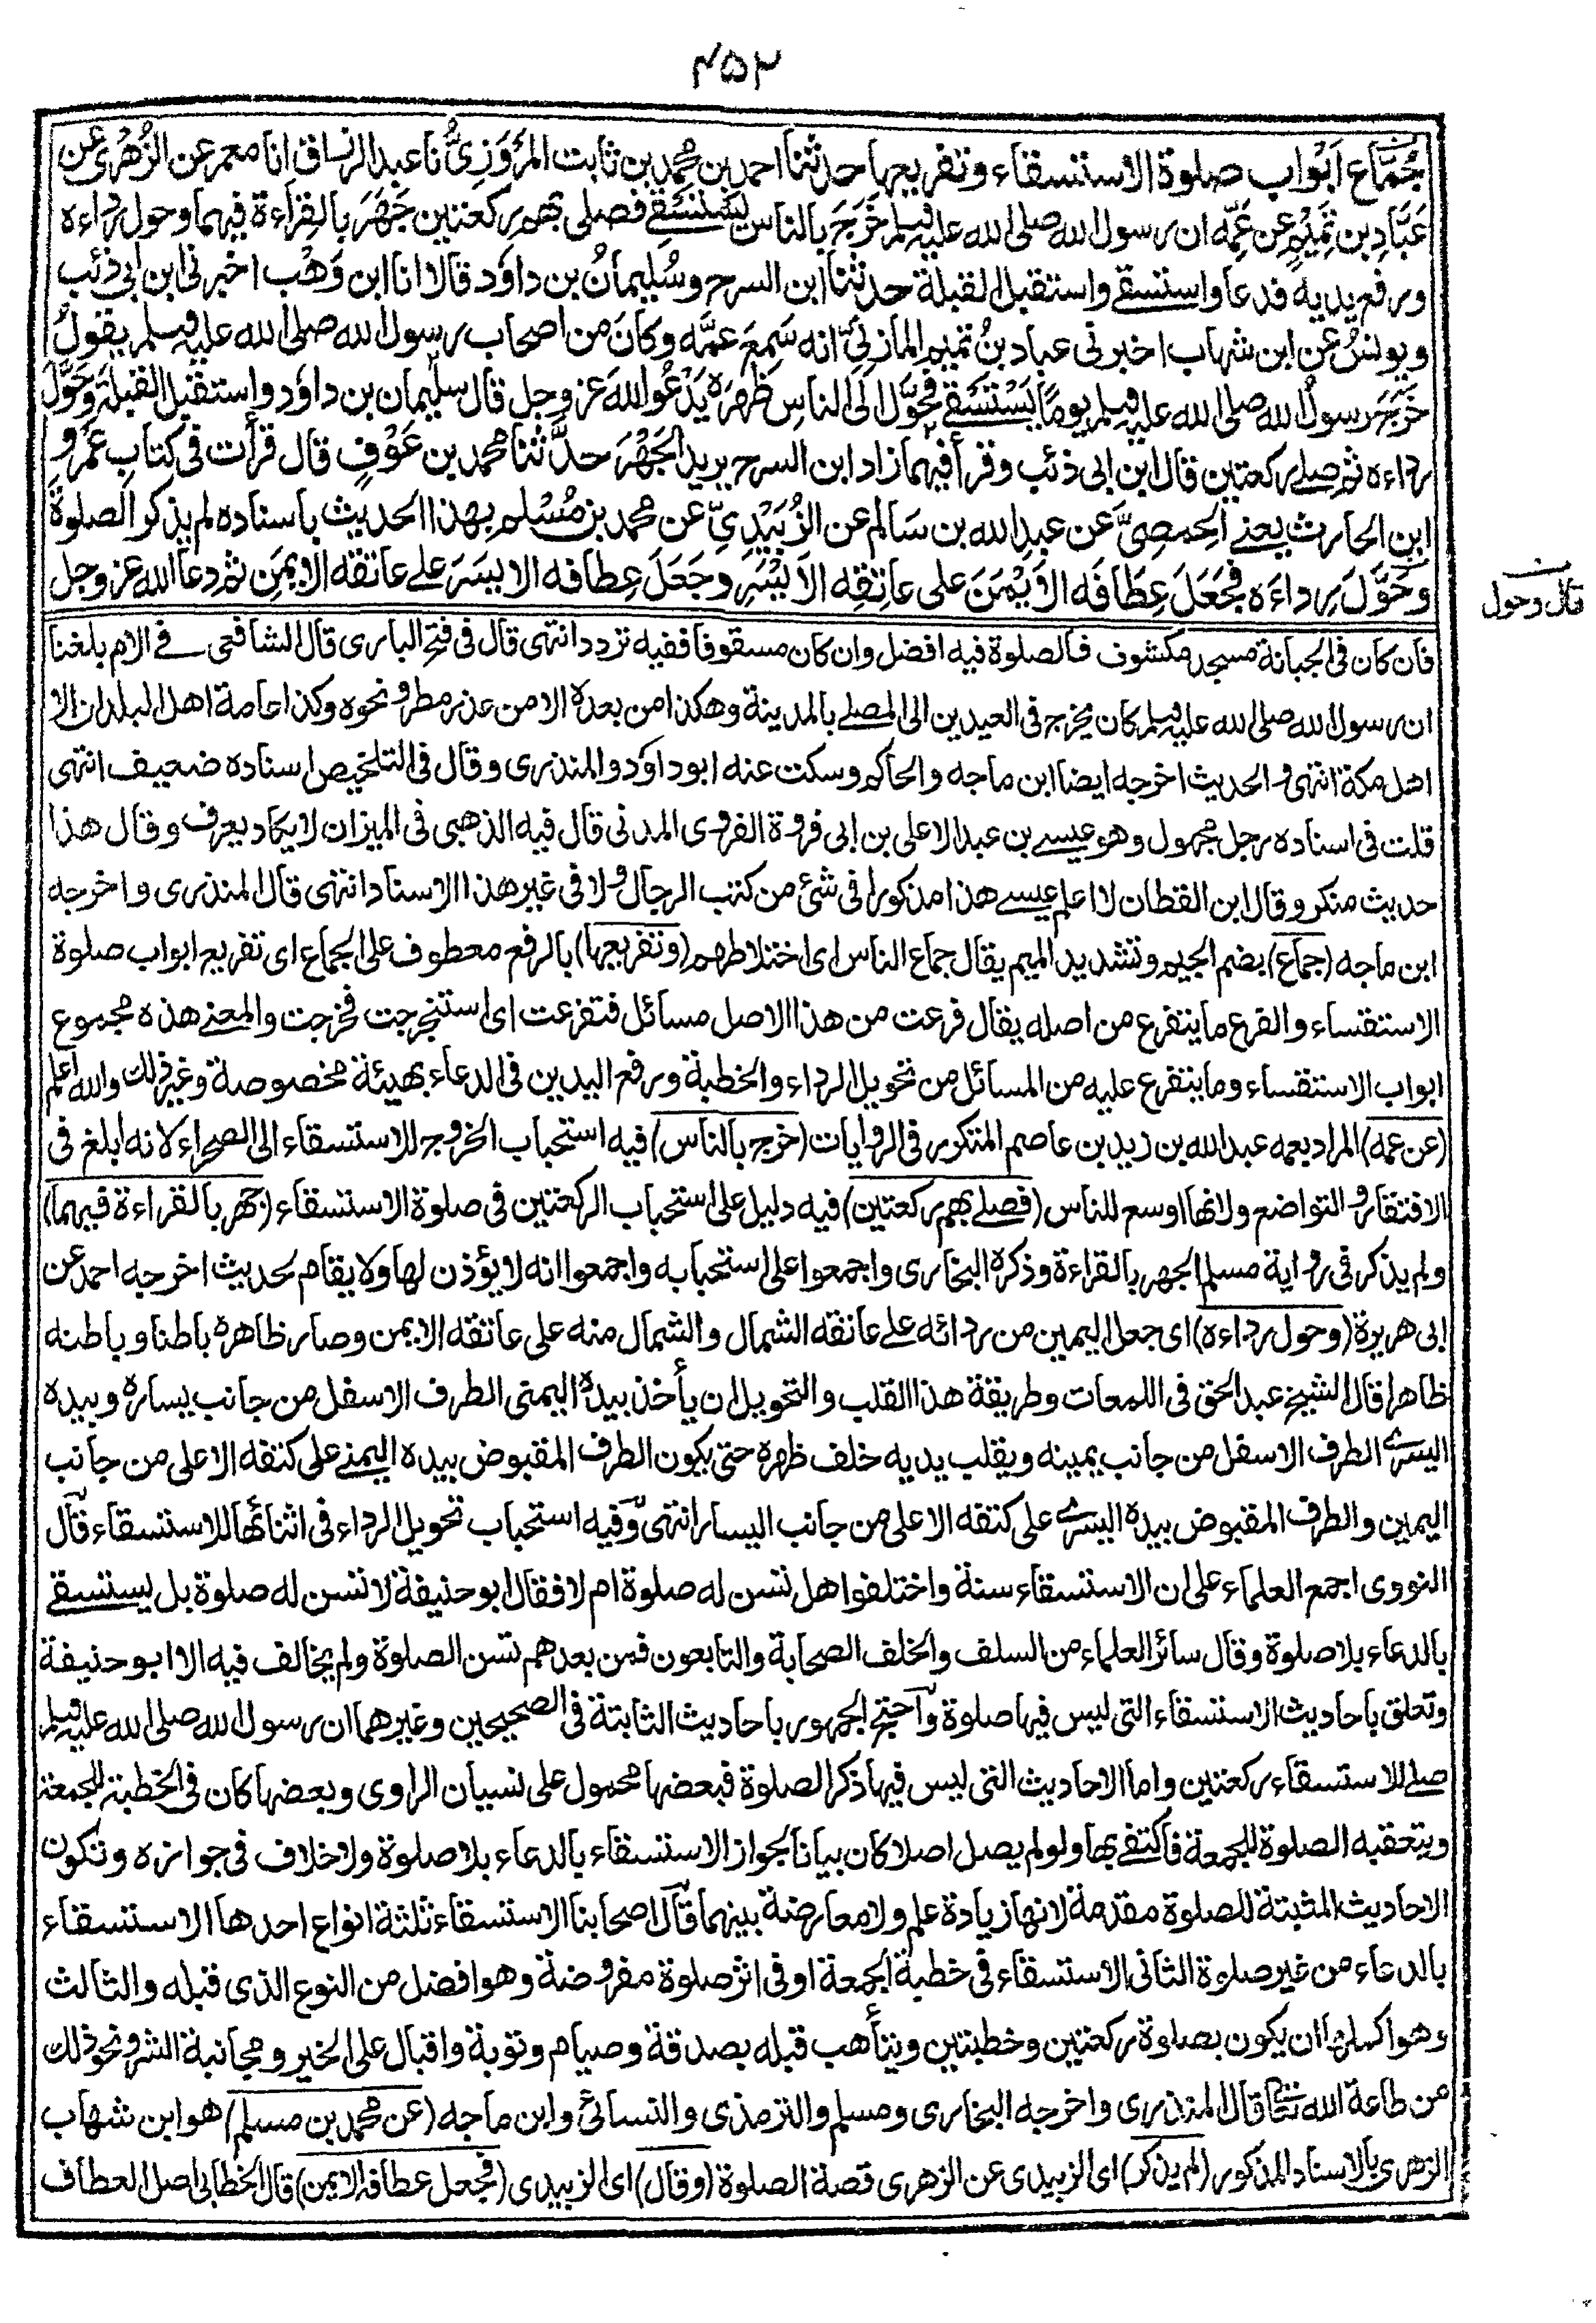 ٤٥٣
جُمَّاع اَبْوَاب صلوة الاستسقاء وتفريعها حدثنا احمد بن محمد بن ثابت المَرْوَزِيُّ نا عبد الرزاق انا معمر عن الزُهْرى عن
عَبَّادِ بن تَمِيْمٍ عن عَمِّه ان رسول الله صلى الله عليه وسلم خَرَجَ بالناس يَسْتَسْقِى فصلى بهم ركعتين جَهَرَ بالقِرَاءَة فيهما وحول رداءه
ورفع يديه فدعا واستسقى واستقبل القبلة حدثنا ابن السرح وسُلَيمانُ بن داوٗد قالا انا ابن وَهْب اخبرنى ابن ابى ذئب
ويونسُ عن ابن شهاب اخبرنى عباد بنُ تميم المازِنِىُّ انه سَمِعَ عمَّه وكان من اصحاب رسول الله صلى الله عليه وسلم يقولُ
خَرَجَ رسولُ الله صلى الله عليه وسلم يومًا يَسْتَسْقِى فَحَوَّلَ اِلَى الناسِ ظَهرَه يَدْعُو اللهَ عز وجل قال سليمان بن داوٗد واستقبل القبلة وحَوَّلَ
رداءه ثم صلى ركعتين قال ابن ابى ذئب وقرأ فيهما زاد ابن السرح يريد الجَهْرَ حدَّثنا محمد بن عَوْفٍ قال قرأت فى كتاب عَمْرِو
ابن الحارث يعنى الحِمصِىَّ عن عبد الله بن سَالم عن الزُبَيْدِىِّ عن محمد بن مُسْلم بهذا الحديث باسناده لم يذكر الصلوة
وحَوَّلَ رداءَه فجعَلَ عِطَافَه الاَيْمَنَ على عاتِقِه الاَيْسَرِ وجَعَلَ عِطافه الايسَرَ على عاتقه الايمَنِ ثم دعا الله عز وجل
قال وحول
فان كان فى الجبانة مسجد مكشوف فالصلوة فيه افضل وان كان مسقوفا ففيه تردد انتهى قال فى فتح البارى قال الشافعى فى الام بلغنا
ان رسول الله صلى الله عليه وسلم كان يخرج فى العيدين الى المصلى بالمدينة وهكذا من بعده الا من عذر مطر ونحوه وكذا عامة اهل البلدان الا
اهل مكة انتهى والحديث اخرجه ايضا ابن ماجه والحاكم وسكت عنه ابو داوٗد والمنذرى وقال فى التلخيص اسناده ضعيف انتهى
قلت فى اسناده رجل مجهول وهو عيسى بن عبد الاعلى بن ابى فروة الفروى المدنى قال فيه الذهبى فى الميزان لا يكاد يعرف وقال هذا
حديث منكر وقال ابن القطان لا اعلم عيسى هذا مذكورا فى شئ من كتب الرجال ولا فى غير هذا الاسناد انتهى قال المنذرى واخرجه
ابن ماجه (جماع) بضم الجيم وتشديد الميم يقال جماع الناس اى اختلاطهم (وتفريعها) بالرفع معطوف على الجماع اى تفريع ابواب صلوة
الاستقساء والفرع ما يتفرع من اصله يقال فرعت من هذا الاصل مسائل فتفرعت اى استخرجت فخرجت والمعنى هذه مجموع
ابواب الاستقساء وما يتفرع عليه من المسائل من تحويل الرداء والخطبة ورفع اليدين فى الدعاء بهيئة مخصوصة وغير ذلك والله اعلم
(عن عمه) المراد بعمه عبد الله بن زيد بن عاصم المتكرر فى الروايات (خرج بالناس) فيه استحباب الخروج للاستسقاء الى الصحراء لانه ابلغ فى
الافتقار والتواضع ولانها اوسع للناس (فصلى بهم ركعتين) فيه دليل على استحباب الركعتين فى صلوة الاستسقاء (جهر بالقراءة فيهما)
ولم يذكر فى رواية مسلم الجهر بالقراءة وذكره البخارى واجمعوا على استحبابه واجمعوا انه لا يؤذن لها ولا يقام لحديث اخرجه احمد عن
ابى هريرة (وحول رداءه) اى جعل اليمين من ردائه على عاتقه الشمال والشمال منه على عاتقه الايمن وصار ظاهره باطنا وباطنه
ظاهرا قال الشيخ عبد الحق فى اللمعات وطريقة هذا القلب والتحويل ان يأخذ بيده اليمنى الطرف الاسفل من جانب يساره وبيده
اليسرى الطرف الاسفل من جانب يمينه ويقلب يديه خلف ظهره حتى يكون الطرف المقبوض بيده اليمنى على كتفه الاعلى من جانب
اليمين والطرف المقبوض بيده اليسرى على كتفه الاعلى من جانب اليسار انتهى وفيه استحباب تحويل الرداء فى اثنائها للاستسقاء قال
النووى اجمع العلماء على ان الاستسقاء سنة واختلفوا هل تسن له صلوة ام لا فقال ابو حنيفة لا تسن له صلوة بل يستسقى
بالدعاء بلا صلوة وقال سائر العلماء من السلف والخلف الصحابة والتابعون فمن بعدهم تسن الصلوة ولم يخالف فيه الا ابو حنيفة
وتعلق باحاديث الاستسقاء التى ليس فيها صلوة واحتج الجمهور باحاديث الثابتة فى الصحيحين وغيرهما ان رسول الله صلى الله عليه وسلم
صلى للاستسقاء ركعتين واما الاحاديث التى ليس فيها ذكر الصلوة فبعضها محمول على نسيان الراوى وبعضها كان فى الخطبة للجمعة
ويتعقبه الصلوة للجمعة فاكتفى بها ولو لم يصل اصلا كان بيانا لجواز الاستسقاء بالدعاء بلا صلوة ولا خلاف فى جوازه وتكون
الاحاديث المثبتة للصلوة مقدمة لانها زيادة علم ولا معارضة بينهما قال اصحابنا الاستسقاء ثلثة انواع احدها الاستسقاء
بالدعاء من غير صلوة الثانى الاستسقاء فى خطبة الجمعة او فى اثر صلوة مفروضة وهو افضل من النوع الذى قبله والثالث
وهو اكملها ان يكون بصلوة ركعتين وخطبتين ويتأهب قبله بصدقة وصيام وتوبة واقبال على الخير ومجانبة الشر ونحو ذلك
من طاعة الله تعالى قال المنذرى واخرجه البخارى ومسلم والترمذى والنسائى وابن ماجه (عن محمد بن مسلم) هو ابن شهاب
الزهرى بالاسناد المذكور (لم يذكر) اى الزبيدى عن الزهرى قصة الصلوة (وقال) اى الزبيدى (فجعل عطافه الايمن) قال الخطابى اصل العطاف